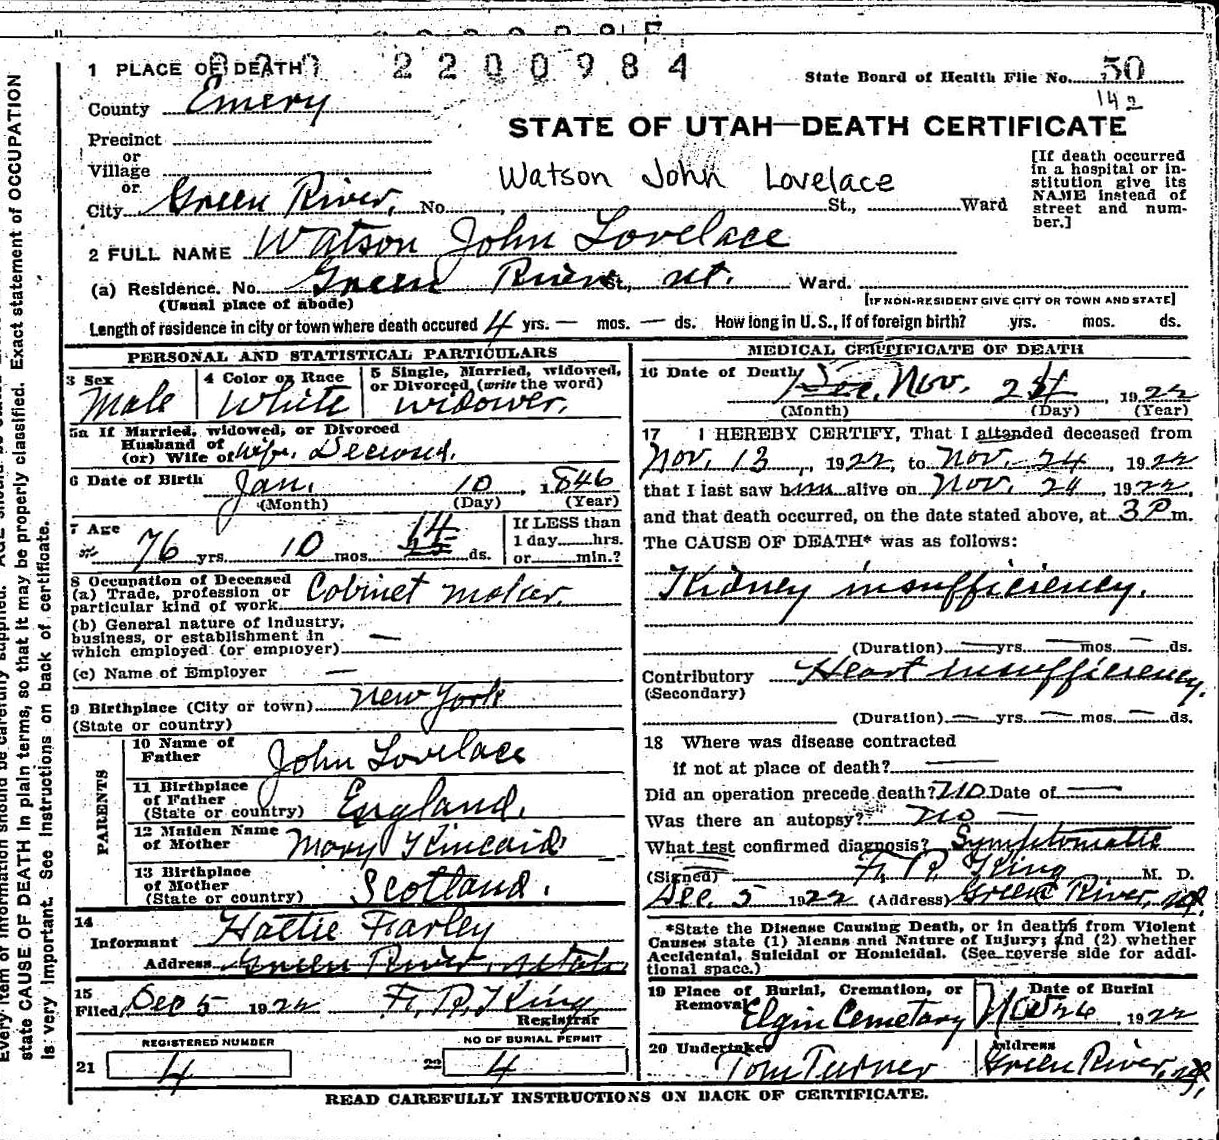 1 PLACE OF DEATH
2200984
State Board of Health File No. 50
142
County Emery
STATE OF UTAH—DEATH CERTIFICATE
Precinct
or
Village
or
City Green River, No. St., Ward
Watson John Lovelace
[If death occurred in a hospital or in-
stitution give its
NAME instead of
street and num-
ber.]
2 FULL NAME Watson John Lovelace
(a) Residence. No. Green River St., ut. Ward.
(Usual place of abode)
[IF NON-RESIDENT GIVE CITY OR TOWN AND STATE]
Length of residence in city or town where death occured 4 yrs. — mos. — ds. How long in U. S., if of foreign birth? yrs. mos. ds.
PERSONAL AND STATISTICAL PARTICULARS
3 Sex
Male
4 Color or Race
White
5 Single, Married, widowed,
or Divorced (write the word)
widower.
5a If Married, widowed, or Divorced
Husband of
(or) Wife of wife. Deceased.
6 Date of Birth Jan. 10, 1846
(Month) (Day) (Year)
7 Age
76 yrs 10 mos 14 ds.
If LESS than
1 day hrs.
or min.?
8 Occupation of Deceased
(a) Trade, profession or
particular kind of work Cabinet maker.
(b) General nature of Industry,
business, or establishment in
which employed (or employer) —
(c) Name of Employer —
9 Birthplace (City or town) New York
(State or country)
PARENTS
10 Name of
Father John Lovelace
11 Birthplace
of Father
(State or country) England.
12 Maiden Name
of Mother Mary Kincaid
13 Birthplace
of Mother
(State or country) Scotland.
14
Informant Hattie Farley
Address Green River, Utah
15
Filed, Dec 5 1922 F. R. King
Registrar
REGISTERED NUMBER
21 4
NO OF BURIAL PERMIT
22 4
MEDICAL CERTIFICATE OF DEATH
16 Date of Death Dec. Nov. 24, 1922
(Month) (Day) (Year)
17 I HEREBY CERTIFY, That I attended deceased from
Nov. 13, 1922, to Nov. 24, 1922
that I last saw him alive on Nov. 24, 1922,
and that death occurred, on the date stated above, at 3 P m.
The CAUSE OF DEATH* was as follows:
Kidney insufficiency.
(Duration) — yrs. — mos. — ds.
Contributory Heart insufficiency.
(Secondary)
(Duration) — yrs. — mos. — ds.
18 Where was disease contracted
if not at place of death? —
Did an operation precede death? no Date of —
Was there an autopsy? no —
What test confirmed diagnosis? Symptomatic
(Signed) F. R. King M. D.
Dec. 5 1922 (Address) Green River, ut.
*State the Disease Causing Death, or in deaths from Violent
Causes state (1) Means and Nature of Injury; and (2) whether
Accidental, Suicidal or Homicidal. (See reverse side for addi-
tional space.)
19 Place of Burial, Cremation, or
Removal Elgin Cemetary
Date of Burial
Nov 26, 1922
20 Undertaker
Tom Turner
Address
Green River, ut.
READ CAREFULLY INSTRUCTIONS ON BACK OF CERTIFICATE.
state CAUSE OF DEATH in plain terms, so that it may be properly classified. Exact statement of OCCUPATION
is very important. See instructions on back of certificate.